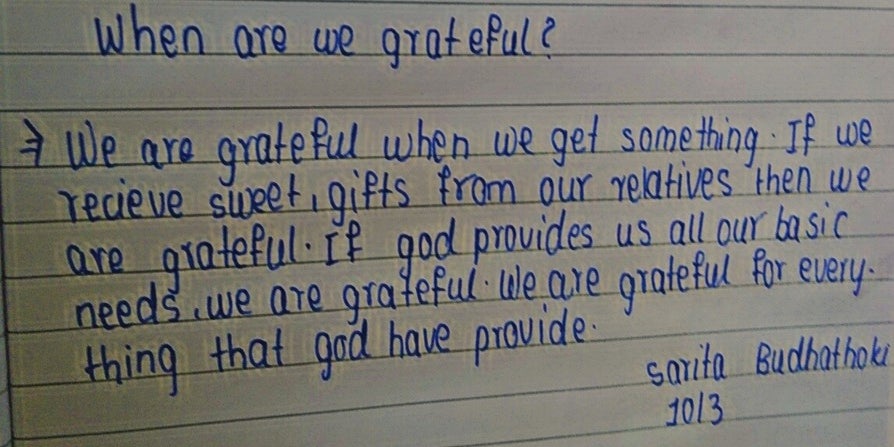 When are we grateful?
⇒ We are grateful when we get something. If we
recieve sweet, gifts from our relatives then we
are grateful. If god provides us all our basic
needs, we are grateful. We are grateful for every-
thing that god have provide.
Sarita Budhathoki
1013